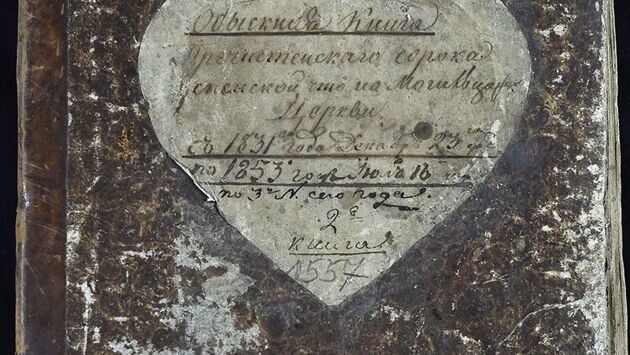 Обыскная Книга
Пречистенскаго сорока
Успенской что на Могильцахъ
Церкви
съ 1831 года Декабря 23
по 1853 годъ Июля 18
по 3 N. сего года.
2я
книга
1557